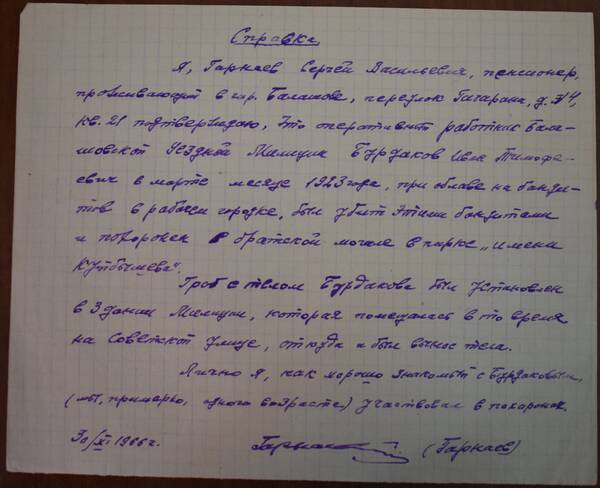 Справка.
Я, Гарнаев Сергей Васильевич, пенсионер,
проживающий в гор. Балашове, переулок Гагарина, д. №4,
кв. 21 подтверждаю, что оперативный работник Бала-
шовской Уездной Милиции Бурдаков Иван Тимофе-
евич в марте месяце 1923 года, при облаве на банди-
тов в рабочем городке, был убит этими бандитами
и похоронен в братской могиле в парке „имени
Куйбышева".
Гроб с телом Бурдакова был установлен
в здании Милиции, которая помещалась в то время
на Советской улице, откуда и был вынос тела.
Лично я, как хорошо знакомый с Бурдаковым,
(мы, примерно, одного возраста) участвовал в похоронах.
30/XI 1966 г. (Гарнаев)